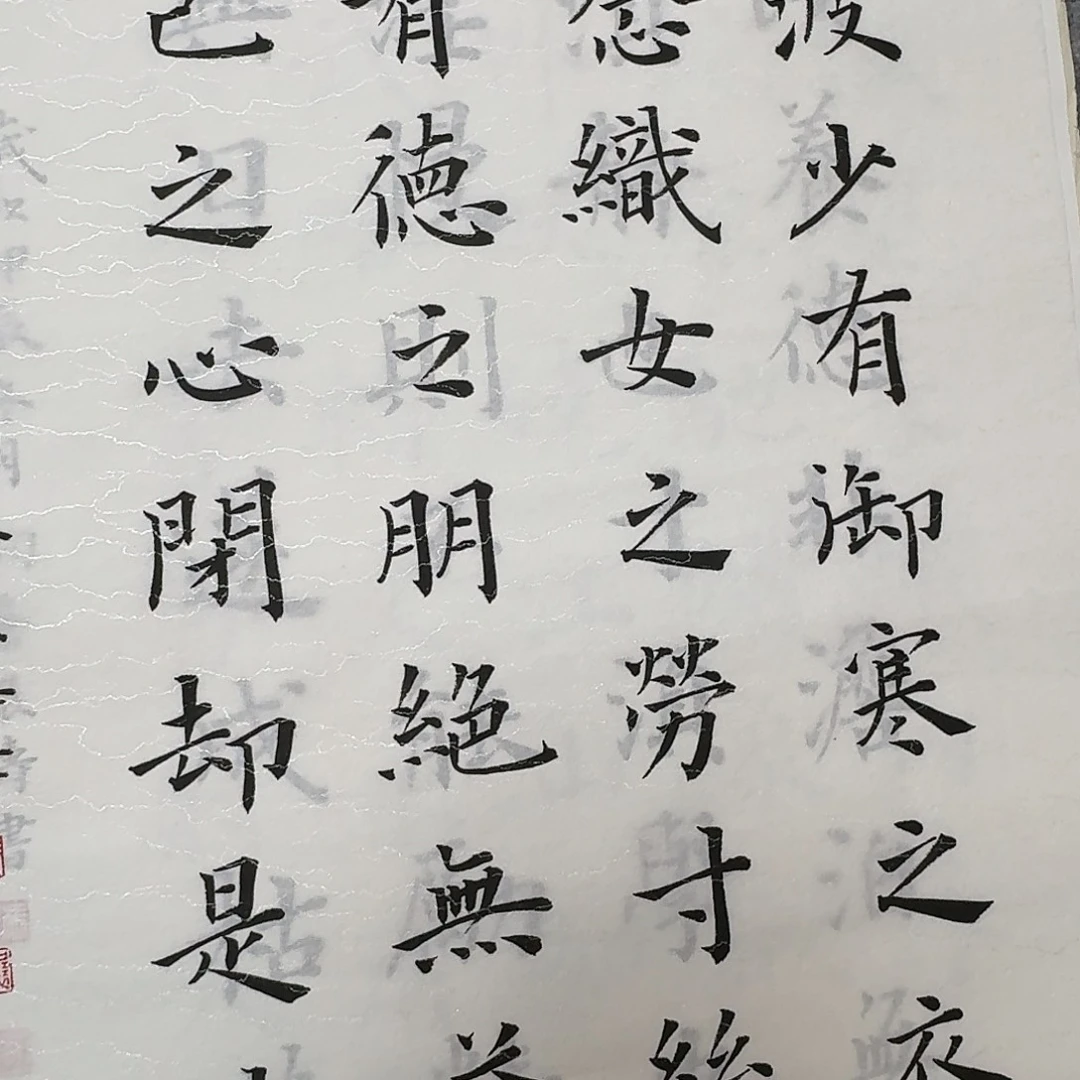 少有御寒之衣
念織女之勞寸絲
有德之朋絕無益
己之心閉却是